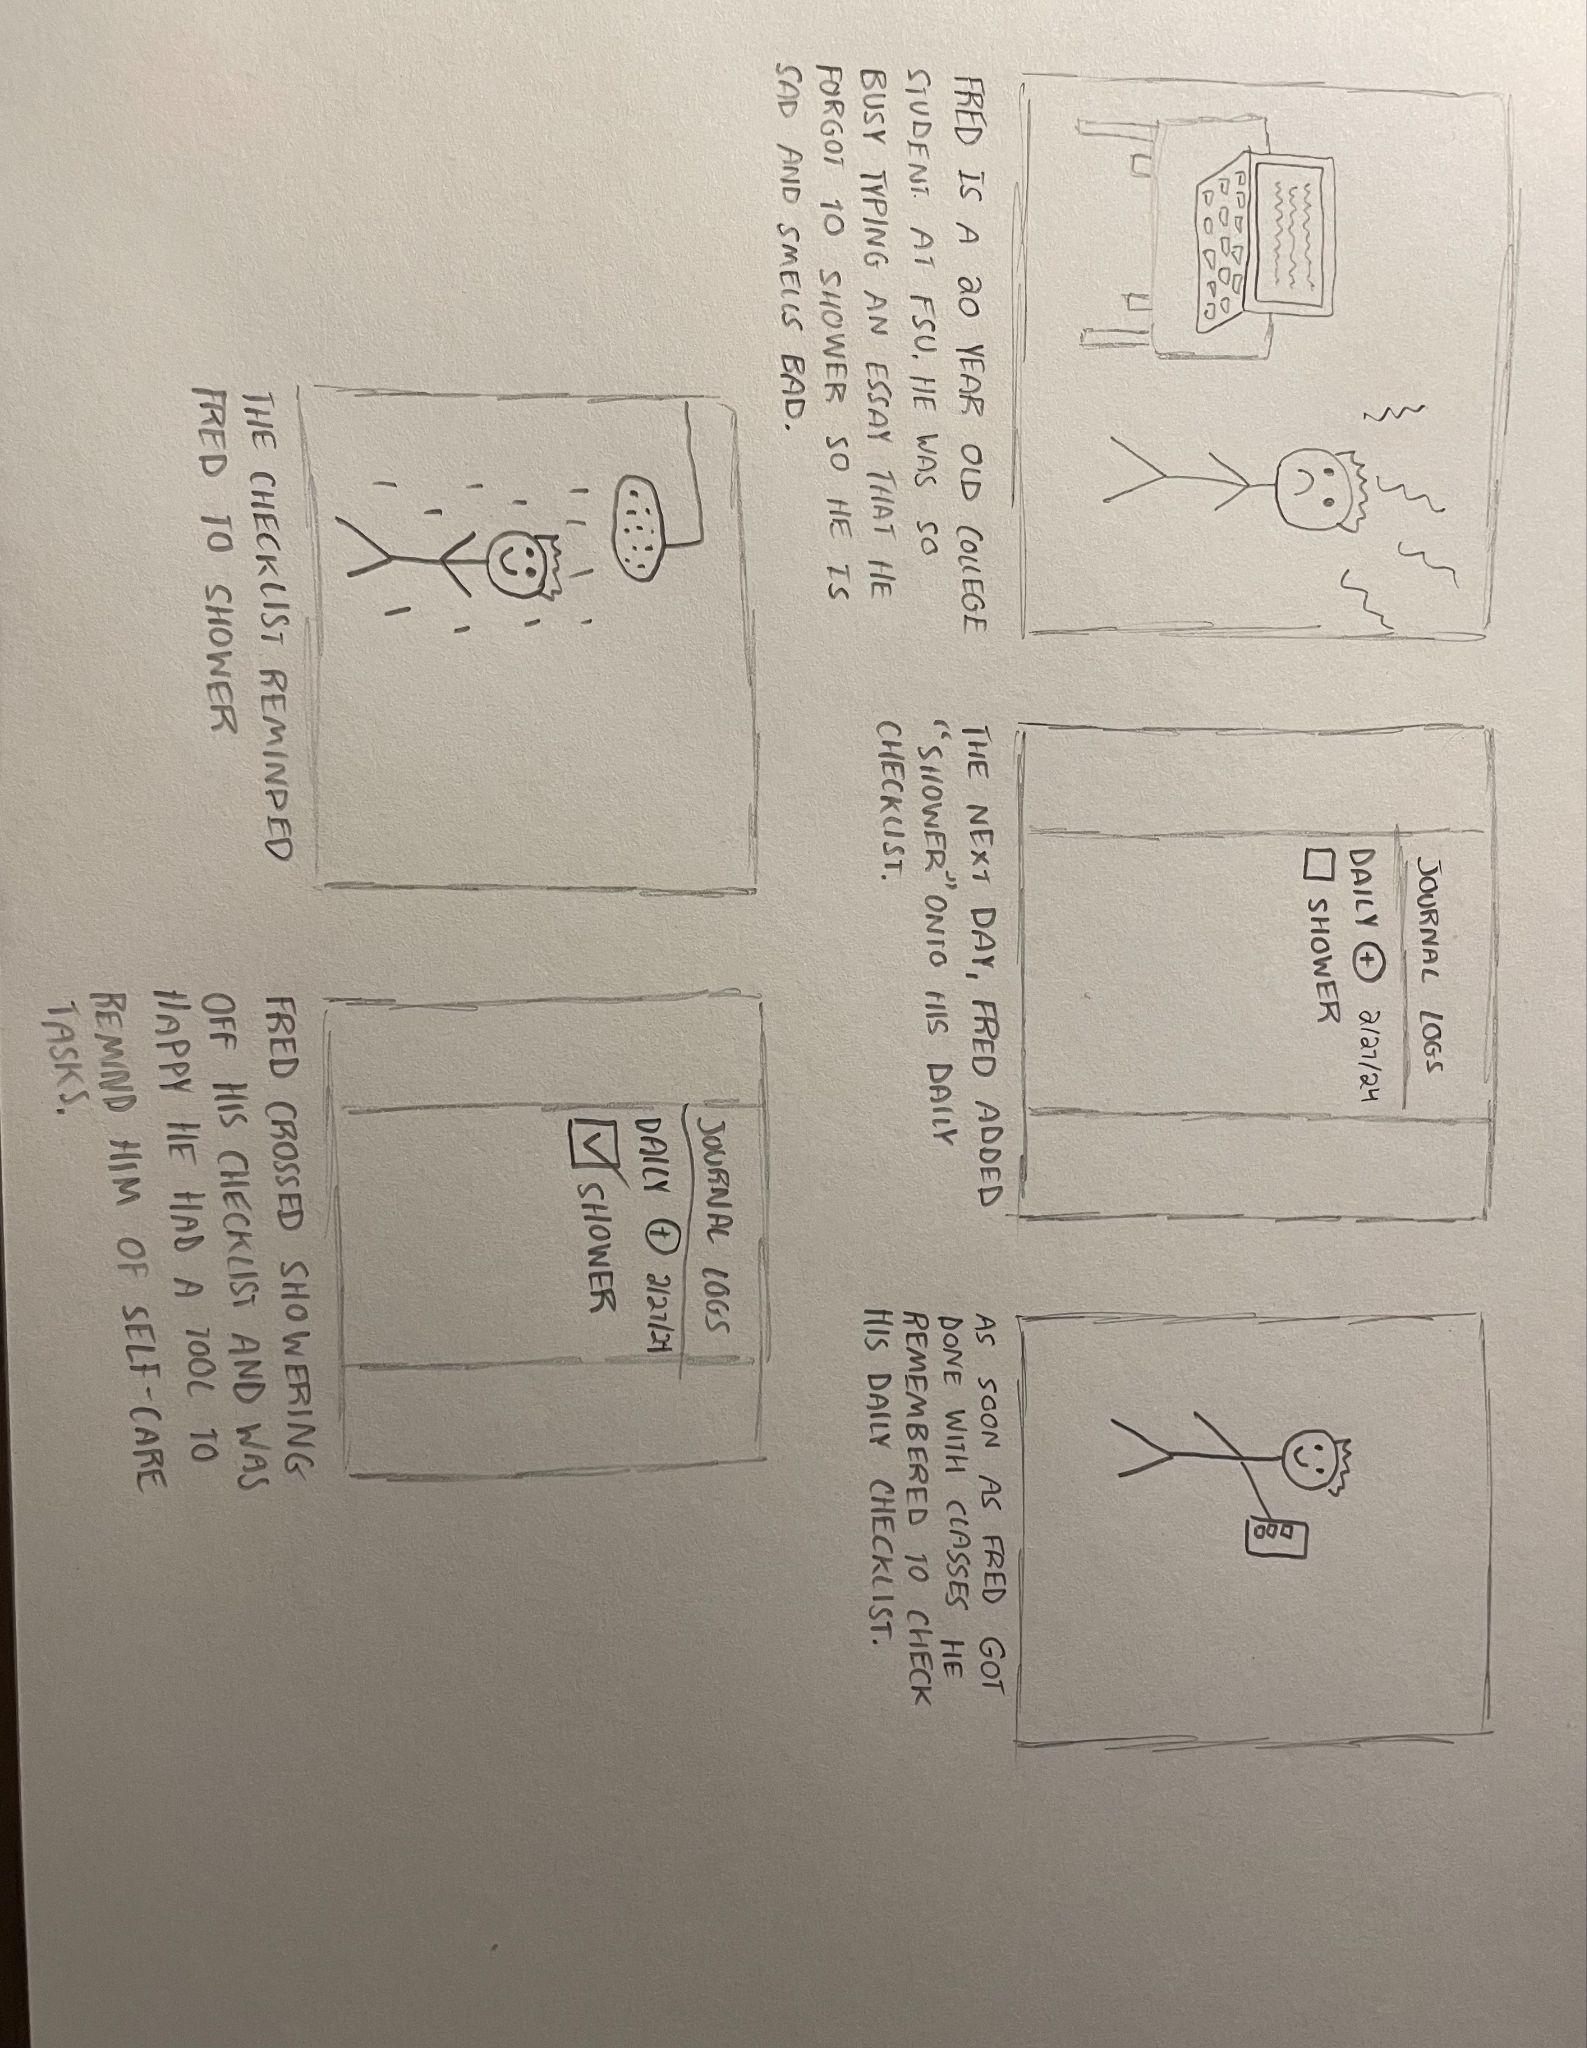 FRED IS A 20 YEAR OLD COLLEGE
STUDENT AT FSU. HE WAS SO
BUSY TYPING AN ESSAY THAT HE
FORGOT TO SHOWER SO HE IS
SAD AND SMELLS BAD.
JOURNAL LOGS
DAILY + 2/27/24
SHOWER
THE NEXT DAY, FRED ADDED
"SHOWER" ONTO HIS DAILY
CHECKLIST.
AS SOON AS FRED GOT
DONE WITH CLASSES HE
REMEMBERED TO CHECK
HIS DAILY CHECKLIST.
THE CHECKLIST REMINDED
FRED TO SHOWER
JOURNAL LOGS
DAILY + 2/27/24
SHOWER
FRED CROSSED SHOWERING
OFF HIS CHECKLIST AND WAS
HAPPY HE HAD A TOOL TO
REMIND HIM OF SELF-CARE
TASKS.